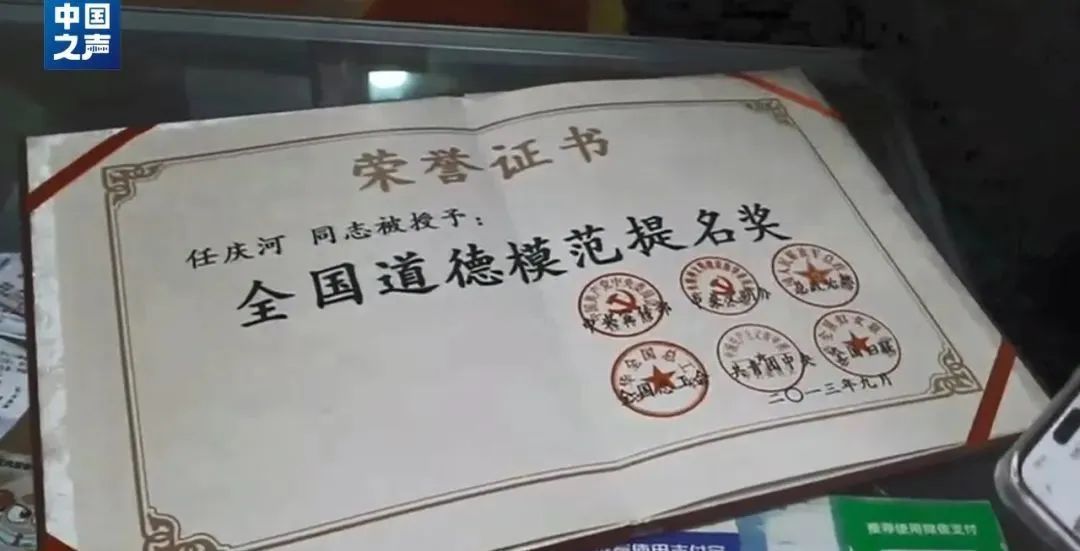 中国
之声
荣誉证书
任庆河 同志被授予：
全国道德模范提名奖
中央宣传部 中央文明办 总政治部
全国总工会 共青团中央 全国妇联
二〇一三年九月
推荐使用微信支付
使用支付宝